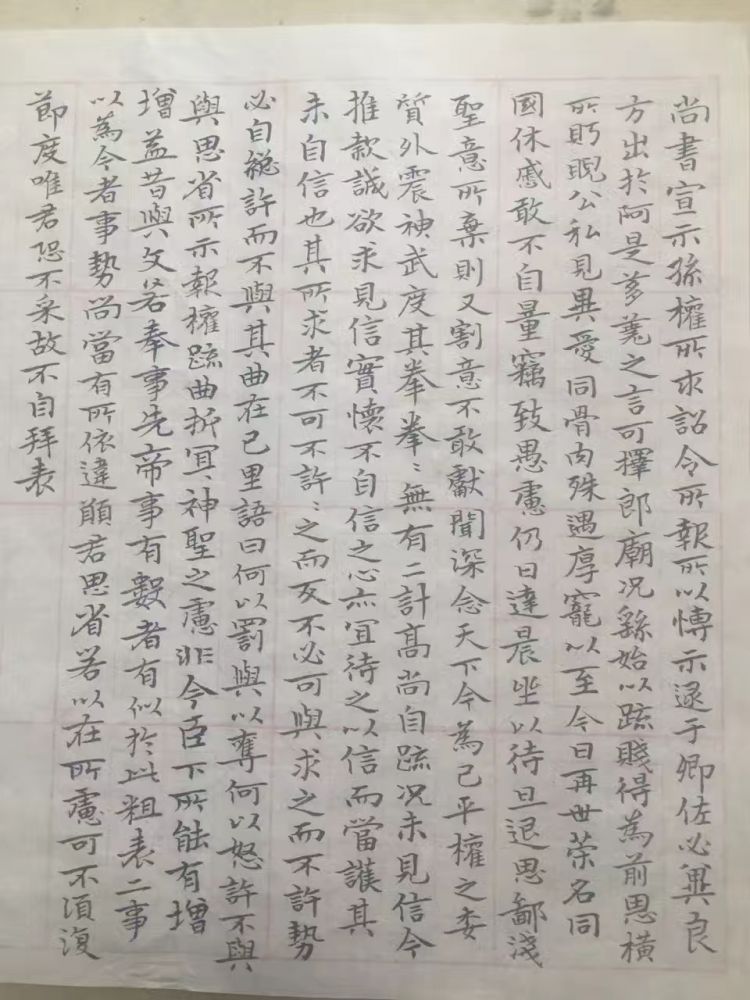 尚書宣示孫權所求詔令所報所以博示逮于卿佐必兾良
方出於阿是芻蕘之言可擇郎廟況繇始以疏賤得為前恩橫
所眄睨公私見異愛同骨肉殊遇厚寵以至今日再世榮名同
國休慼敢不自量竊致愚慮仍日達晨坐以待旦退思鄙淺
聖意所棄則又割意不敢獻聞深念天下今為已平權之委
質外震神武度其拳拳〻無有二計高尚自疏況未見信今
推款誠欲求見信實懷不自信之心亦宜待之以信而當護其
未自信也其所求者不可不許〻之而反不必可與求之而不許勢
必自絕許而不與其曲在己里語曰何以罰與以奪何以怒許不與
與思省所示報權疏曲折宜〻神聖之慮非今臣下所能有增
增益昔與文若奉事先帝事有數者有似於此粗表二事
以為今者事勢尚當有所依違願君思省若以在所慮可不須復
節度唯君恐不采故不自拜表